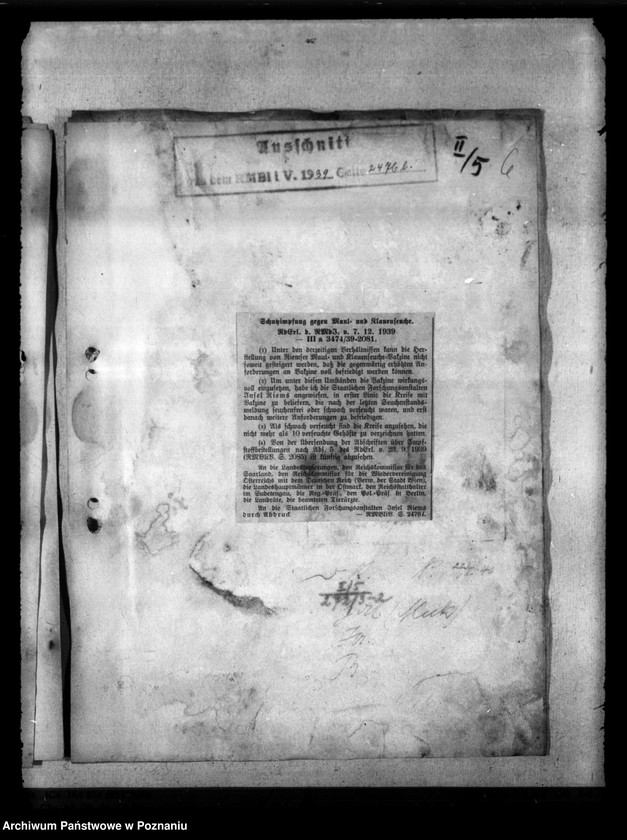 Ausschnitt
II/5 6
aus dem RMBliV. 1939 Seite 2476 c.
Schutzimpfung gegen Maul- und Klauenseuche.
RdErl. d. RMdJ. v. 7. 12. 1939
— III a 3474/39-2081.
(1) Unter den derzeitigen Verhältnissen kann die Her-
stellung von Riemser Maul- und Klauenseuche-Vakzine nicht
soweit gesteigert werden, daß die gegenwärtig erhöhten An-
forderungen an Vakzine voll befriedigt werden können.
(2) Um unter diesen Umständen die Vakzine wirkungs-
voll einzusetzen, habe ich die Staatlichen Forschungsanstalten
Insel Riems angewiesen, in erster Linie die Kreise mit
Vakzine zu beliefern, die nach der letzten Seuchenstands-
meldung seuchenfrei oder schwach verseucht waren, und erst
danach weitere Anforderungen zu befriedigen.
(3) Als schwach verseucht sind die Kreise anzusehen, die
nicht mehr als 10 verseuchte Gehöfte zu verzeichnen hatten.
(4) Von der Übersendung der Abschriften über Impf-
stoffbestellungen nach Abs. 5 des RdErl. v. 23. 9. 1939
(RMBliV. S. 2035) ist künftig abzusehen.
An die Landesregierungen, den Reichskommissar für das
Saarland, den Reichskommissar für die Wiedervereinigung
Österreichs mit dem Deutschen Reich (Gem. der Stadt Wien),
die Landeshauptmänner in der Ostmark, den Reichsstatthalter
im Sudetengau, die Reg.-Präs., den Pol.-Präs. in Berlin,
die Landräte, die beamteten Tierärzte.
An die Staatlichen Forschungsanstalten Insel Riems
durch Abdruck. — RMBliV. S. 2476 c.
II/5
Archiwum Państwowe w Poznaniu